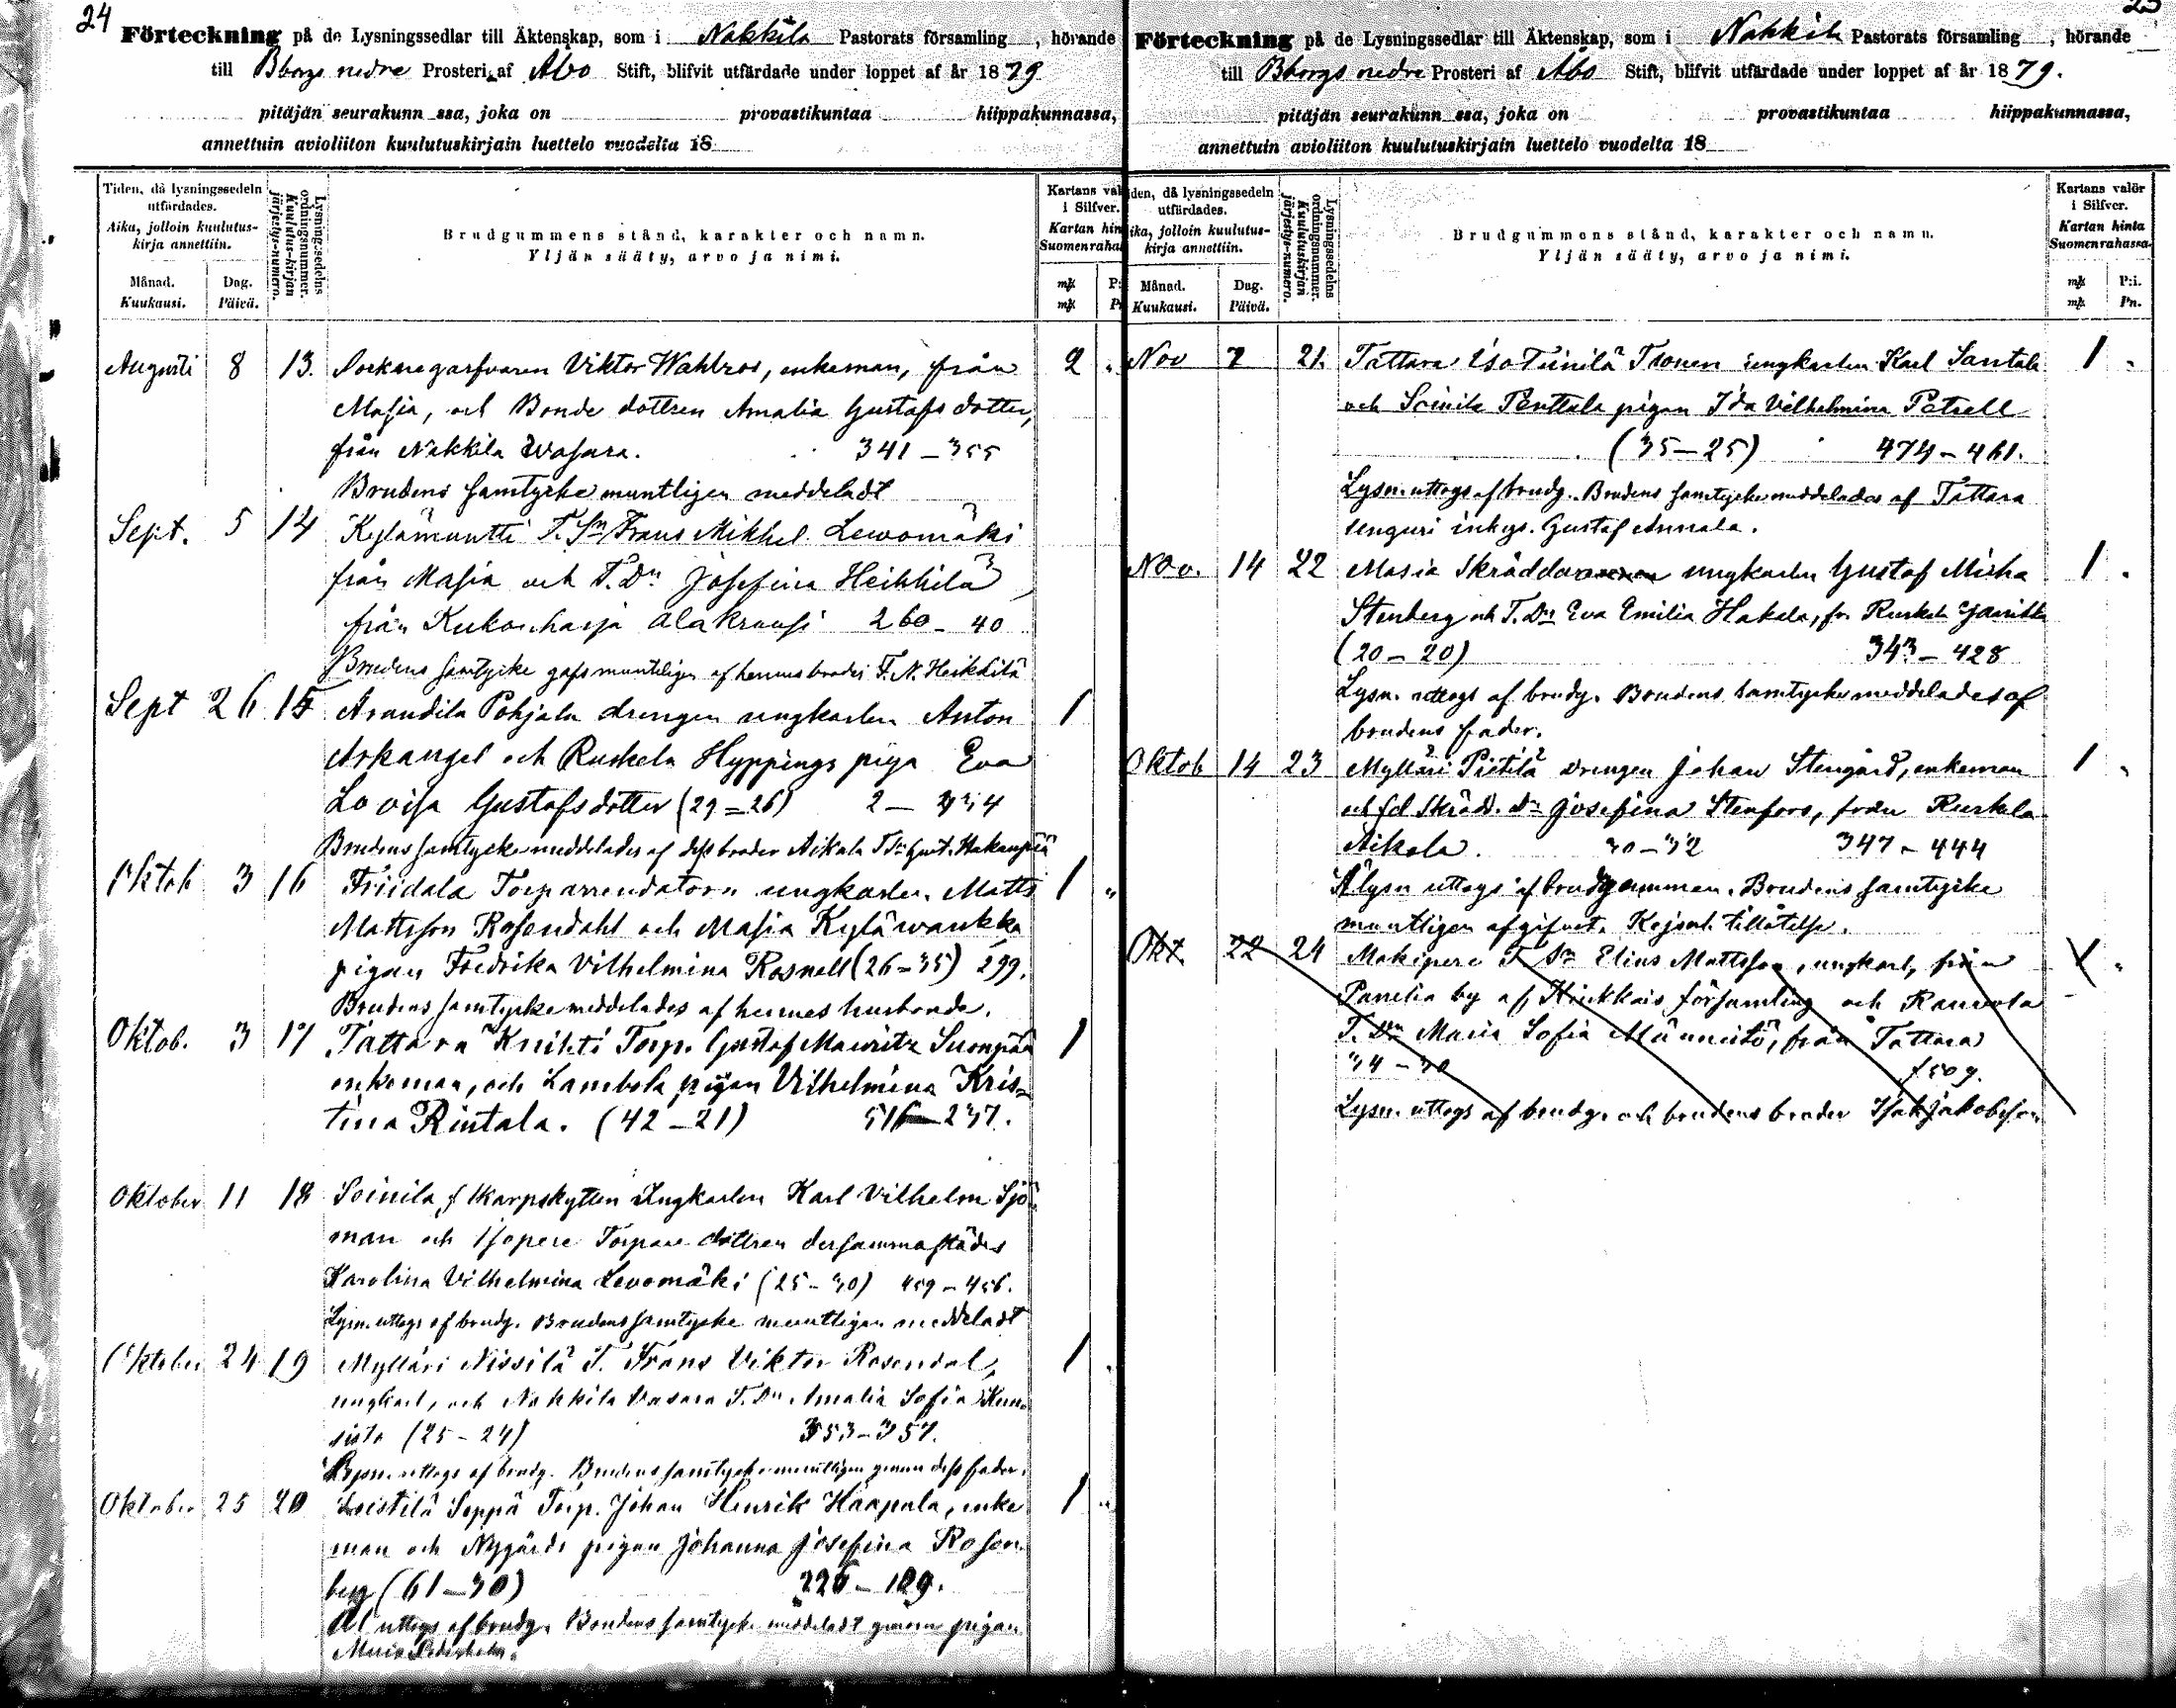 24
Förteckning på de Lysningssedlar till Äktenskap, som i Nakkila Pastorats församling , hörande
till Bborgs nedre Prosteri af Åbo Stift, blifvit utfärdade under loppet af år 1879
pitäjän seurakunn ssa, joka on provastikuntaa hiippakunnassa,
annettuin avioliiton kuulutuskirjain luettelo vuodelta 18
Tiden, då lysningssedeln utfärdades.
Aika, jolloin kuulutus-kirja annettiin.
Månad. Kuukausi.
Dag. Päivä.
Lysningssedelns ordningsnummer.
Kuulutus-kirjan järjestys-numero.
Brudgummens stånd, karakter och namn.
Yljän sääty, arvo ja nimi.
Kartans val
i Silfver.
Kartan hin
Suomenraha
mk P:
mk P
Augusti 8 13. Sockne garfvaren Viktor Wahlros, enkeman, från 2 "
Masia, och Bonde dottren Amalia Gustafs dotter,
från Nakkila Wasara. 341-355
Brudens samtycke muntligen meddeladt
Sept. 5 14 Kylämuntti T. Sn Frans Mikkel Lewomäki
från Masia och T. Dn Josefina Heikkilä
från Kukonharja Alakrausi 260-40
Brudens samtycke gafs muntligen af hennes broder F. N. Heikkilä
Sept 26 15 Arandila Pohjala drengen ungkarlen Anton 1
Arkangel och Ruskela Hyppings piga Eva
Lovisa Gustafsdotter (29=26) 2 - 334
Brudens samtycke meddelades af dess broder Aikala
Oktob 3 16 Friidala Torparrendatorn ungkarlen Matts 1 "
Mattsson Rosendahl och Masia Kylävankka
pigan Fredrika Vilhelmina Rosnell (26-35) 299.
Brudens samtycke meddelades af hennes husbonde.
Oktob. 3 17 Tattara Knihti Torp. Gustaf Mauritz Suonpää 1
enkeman, och Lambola pigan Vilhelmina Kris-
tina Rintala. (42-21) 516-237.
Oktober 11 18 Soinila f skarpskytten Ungkarlen Karl Vilhelm Sjö-
man och Isopere Torpare dottren dersammastädes
Karolina Vilhelmina Levomäki (25-30) 459-456.
Lysn. uttogs af brudg. Brudens samtycke muntligen meddeladt
Oktober 24 19 Mylläri Nissilä T. Frans Viktor Rosendal, 1 "
ungkarl, och Nakkila Vasara T. Dn Amalia Sofia Kuu-
sisto (25-24) 353-357.
Lysn. uttogs af brudg. Brudens samtycke muntligen genom dess fader.
Oktober 25 20 Leistilä Seppä Torp. Johan Henrik Haapala, enke 1 "
man och Nygårds pigan Johanna Josefina Rosen-
berg (61-30) 226-189.
uttogs af brudg. Brudens samtycke meddeladt genom pigan
25
Förteckning på de Lysningssedlar till Äktenskap, som i Nakkila Pastorats församling , hörande
till Bborgs nedre Prosteri af Åbo Stift, blifvit utfärdade under loppet af år 1879.
pitäjän seurakunn ssa, joka on provastikuntaa hiippakunnassa,
annettuin avioliiton kuulutuskirjain luettelo vuodelta 18
iden, då lysningssedeln utfärdades.
ika, jolloin kuulutus-kirja annettiin.
Månad. Kuukausi.
Dag. Päivä.
Lysningssedelns ordningsnummer.
Kuulutuskirjan järjestys-numero.
Brudgummens stånd, karakter och namn.
Yljän sääty, arvo ja nimi.
Kartans valör
i Silfver.
Kartan hinta
Suomenrahassa
mk P:i.
mk Pn.
Nov 7 21. Tattara Iso Tinilä Tronen ungkarlen Karl Santala 1 "
och Soinila Penttala pigan Ida Vilhelmina Petrell
(35-25) 474-461.
Lysn. uttogs af brudg. Brudens samtycke meddelades af Tattara
unguri inhys. Gustaf Annala.
Nov. 14 22 Masia Skräddaren ungkarlen Gustaf Misha 1 "
Stenberg och T. Dn Eva Emilia Hakala, fr. Ruskela
(20-20) 343-428
Lysn. uttogs af brudg. Brudens samtycke meddelades af
brudens fader.
Oktob 14 23 Mylläri Pietilä drengen Johan Stengård, enkeman 1 "
och fd Skrädd. dn Josefina Stenfors, från Ruskela
Aikala. 30-32 347-444
lysn uttogs af brudgummen. Brudens samtycke
muntligen afgifvet. Kejserl. tillåtelse.
Okt 22 24 Makipere T Sn Elias Mattsson, ungkarl, från 1 "
Panelia by af Kiukkais församling och Rauvola
T. Dn Maria Sofia Männistö, från Tattara
34-30 f 509.
Lysn. uttogs af brudg. och brudens broder Isak Jakobsson